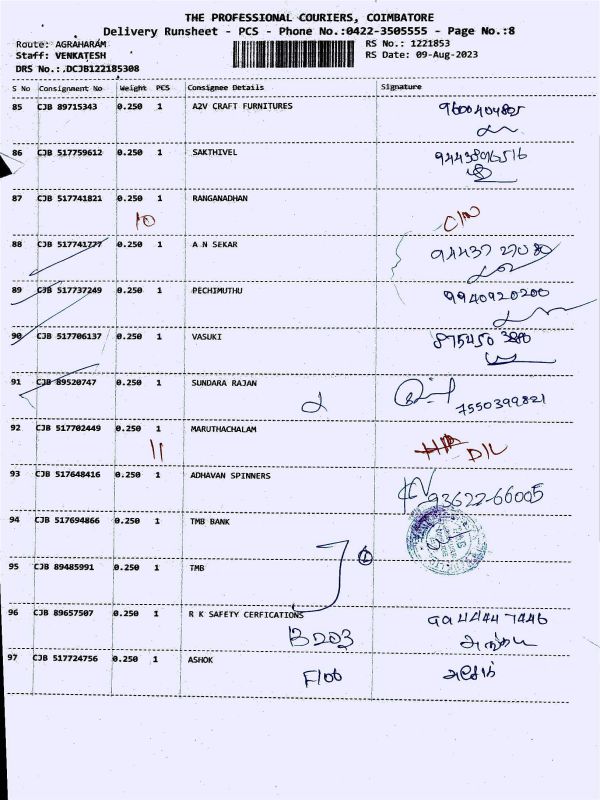 THE PROFESSIONAL COURIERS, COIMBATORE
Delivery Runsheet - PCS - Phone No.:0422-3505555 - Page No.:8
Route: AGRAHARAM RS No.: 1221853
Staff: VENKATESH RS Date: 09-Aug-2023
DRS No.:.DCJB122185308
S No Consignment No Weight PCS Consignee Details Signature
85 CJB 89715343 0.250 1 A2V CRAFT FURNITURES
86 CJB 517759612 0.250 1 SAKTHIVEL
87 CJB 517741821 0.250 1 RANGANADHAN
10
88 CJB 517741777 0.250 1 A N SEKAR
89 CJB 517737249 0.250 1 PECHIMUTHU 9940920200
90 CJB 517706137 0.250 1 VASUKI
91 CJB 89520747 0.250 1 SUNDARA RAJAN
7550399821
92 CJB 517702449 0.250 1 MARUTHACHALAM
11 D/L
93 CJB 517648416 0.250 1 ADHAVAN SPINNERS
93622-66005
94 CJB 517694866 0.250 1 TMB BANK
95 CJB 89485991 0.250 1 TMB
96 CJB 89657507 0.250 1 R K SAFETY CERFICATIONS
B203
97 CJB 517724756 0.250 1 ASHOK
F106